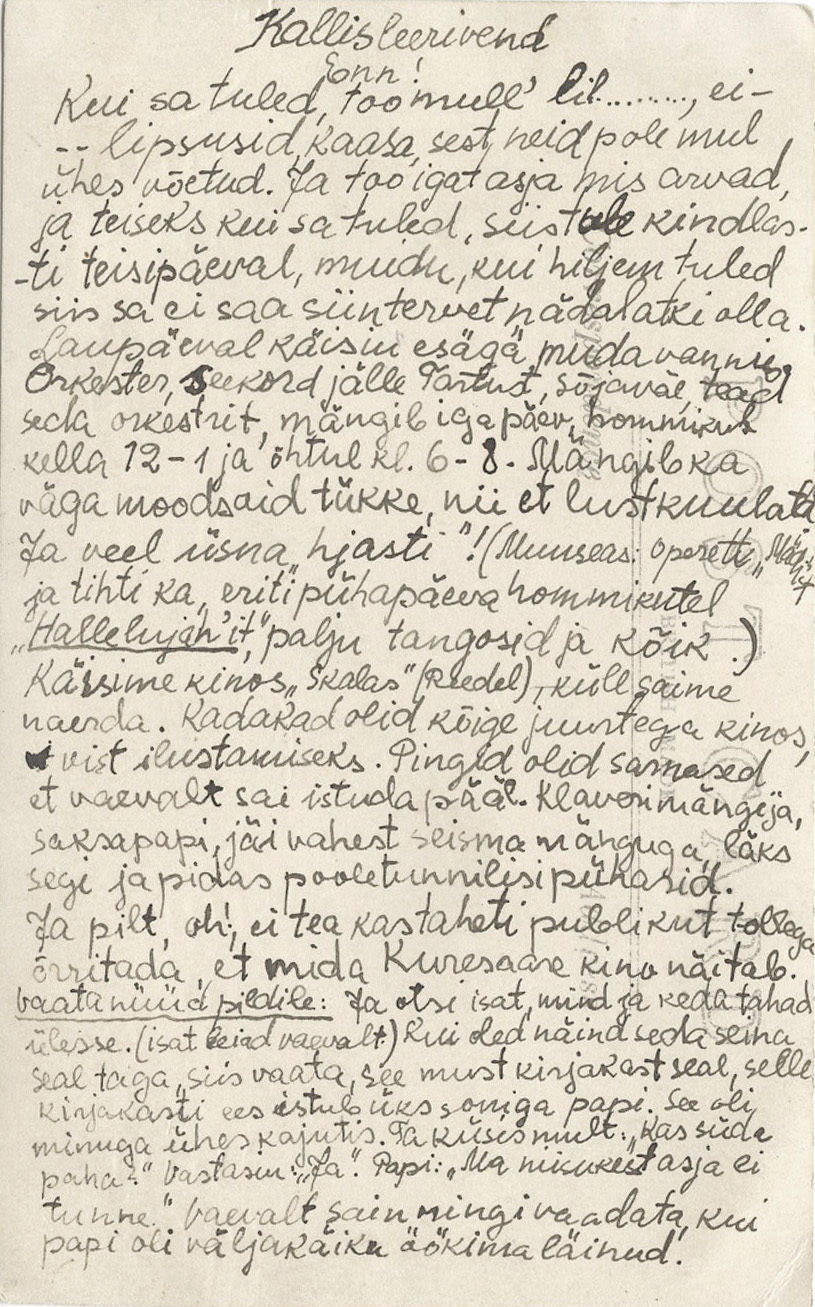 Kallis leerivend
Eonn!
Kui sa tuled, too mull' lil.........., ei-
-- lipsusid, kaasa, sest neid pole mul
ühes võetud. Ja too igat asja mis arvad,
ja teiseks kui sa tuled, siis tule kindlas-
-ti teisipäeval, muidu, kui hiljem tuled
siis sa ei saa siin tervet nädalatki olla.
Laupäeval käisin esägä muda vannis.
Orkester, seekord jälle Tartust, sõjaväe, tead
seda orkestrit, mängib iga päev, hommikul
kella 12-1 ja õhtul kl. 6-8. Mängib ka
väga moodsaid tükke, nii et lust kuulata
Ja veel üsna „hjasti"! (Muuseas: operetti
ja tihti ka, eriti pühapäeva hommikutel
„Hallelujah'it," palju tangosid ja kõik.)
Käisime kinos „Skalas" (Reedel), küll saime
naerda. Kadakad olid kõige juurtega kinos,
vist ilustamiseks. Pingid olid sarnased
et vaevalt sai istuda pääl. Klaverimängija,
saksapapi, jäi vahest seisma mänguga, läks
segi ja pidas pooletunnilisi pühasid.
Ja pilt, oh!, ei tea kas taheti publikut tollega
õrritada, et mida Kuresaare kino näitab.
Vaata nüüd pildile: Ja otsi isat, mind ja keda tahad
ülesse. (isat leiad vaevalt.) Kui oled näind seda seina
seal taga, siis vaata, see must kirjakast seal, selle
kirjakasti ees istub üks soniga papi. See oli
minuga ühes kajutis. Ta küsis mult: „Kas süda
paha?" Vastasin: „Ja". Papi: „Ma niisukest asja ei
tunne." Vaevalt sain ringi vaadata, kui
papi oli väljakäiku öökima läinud!